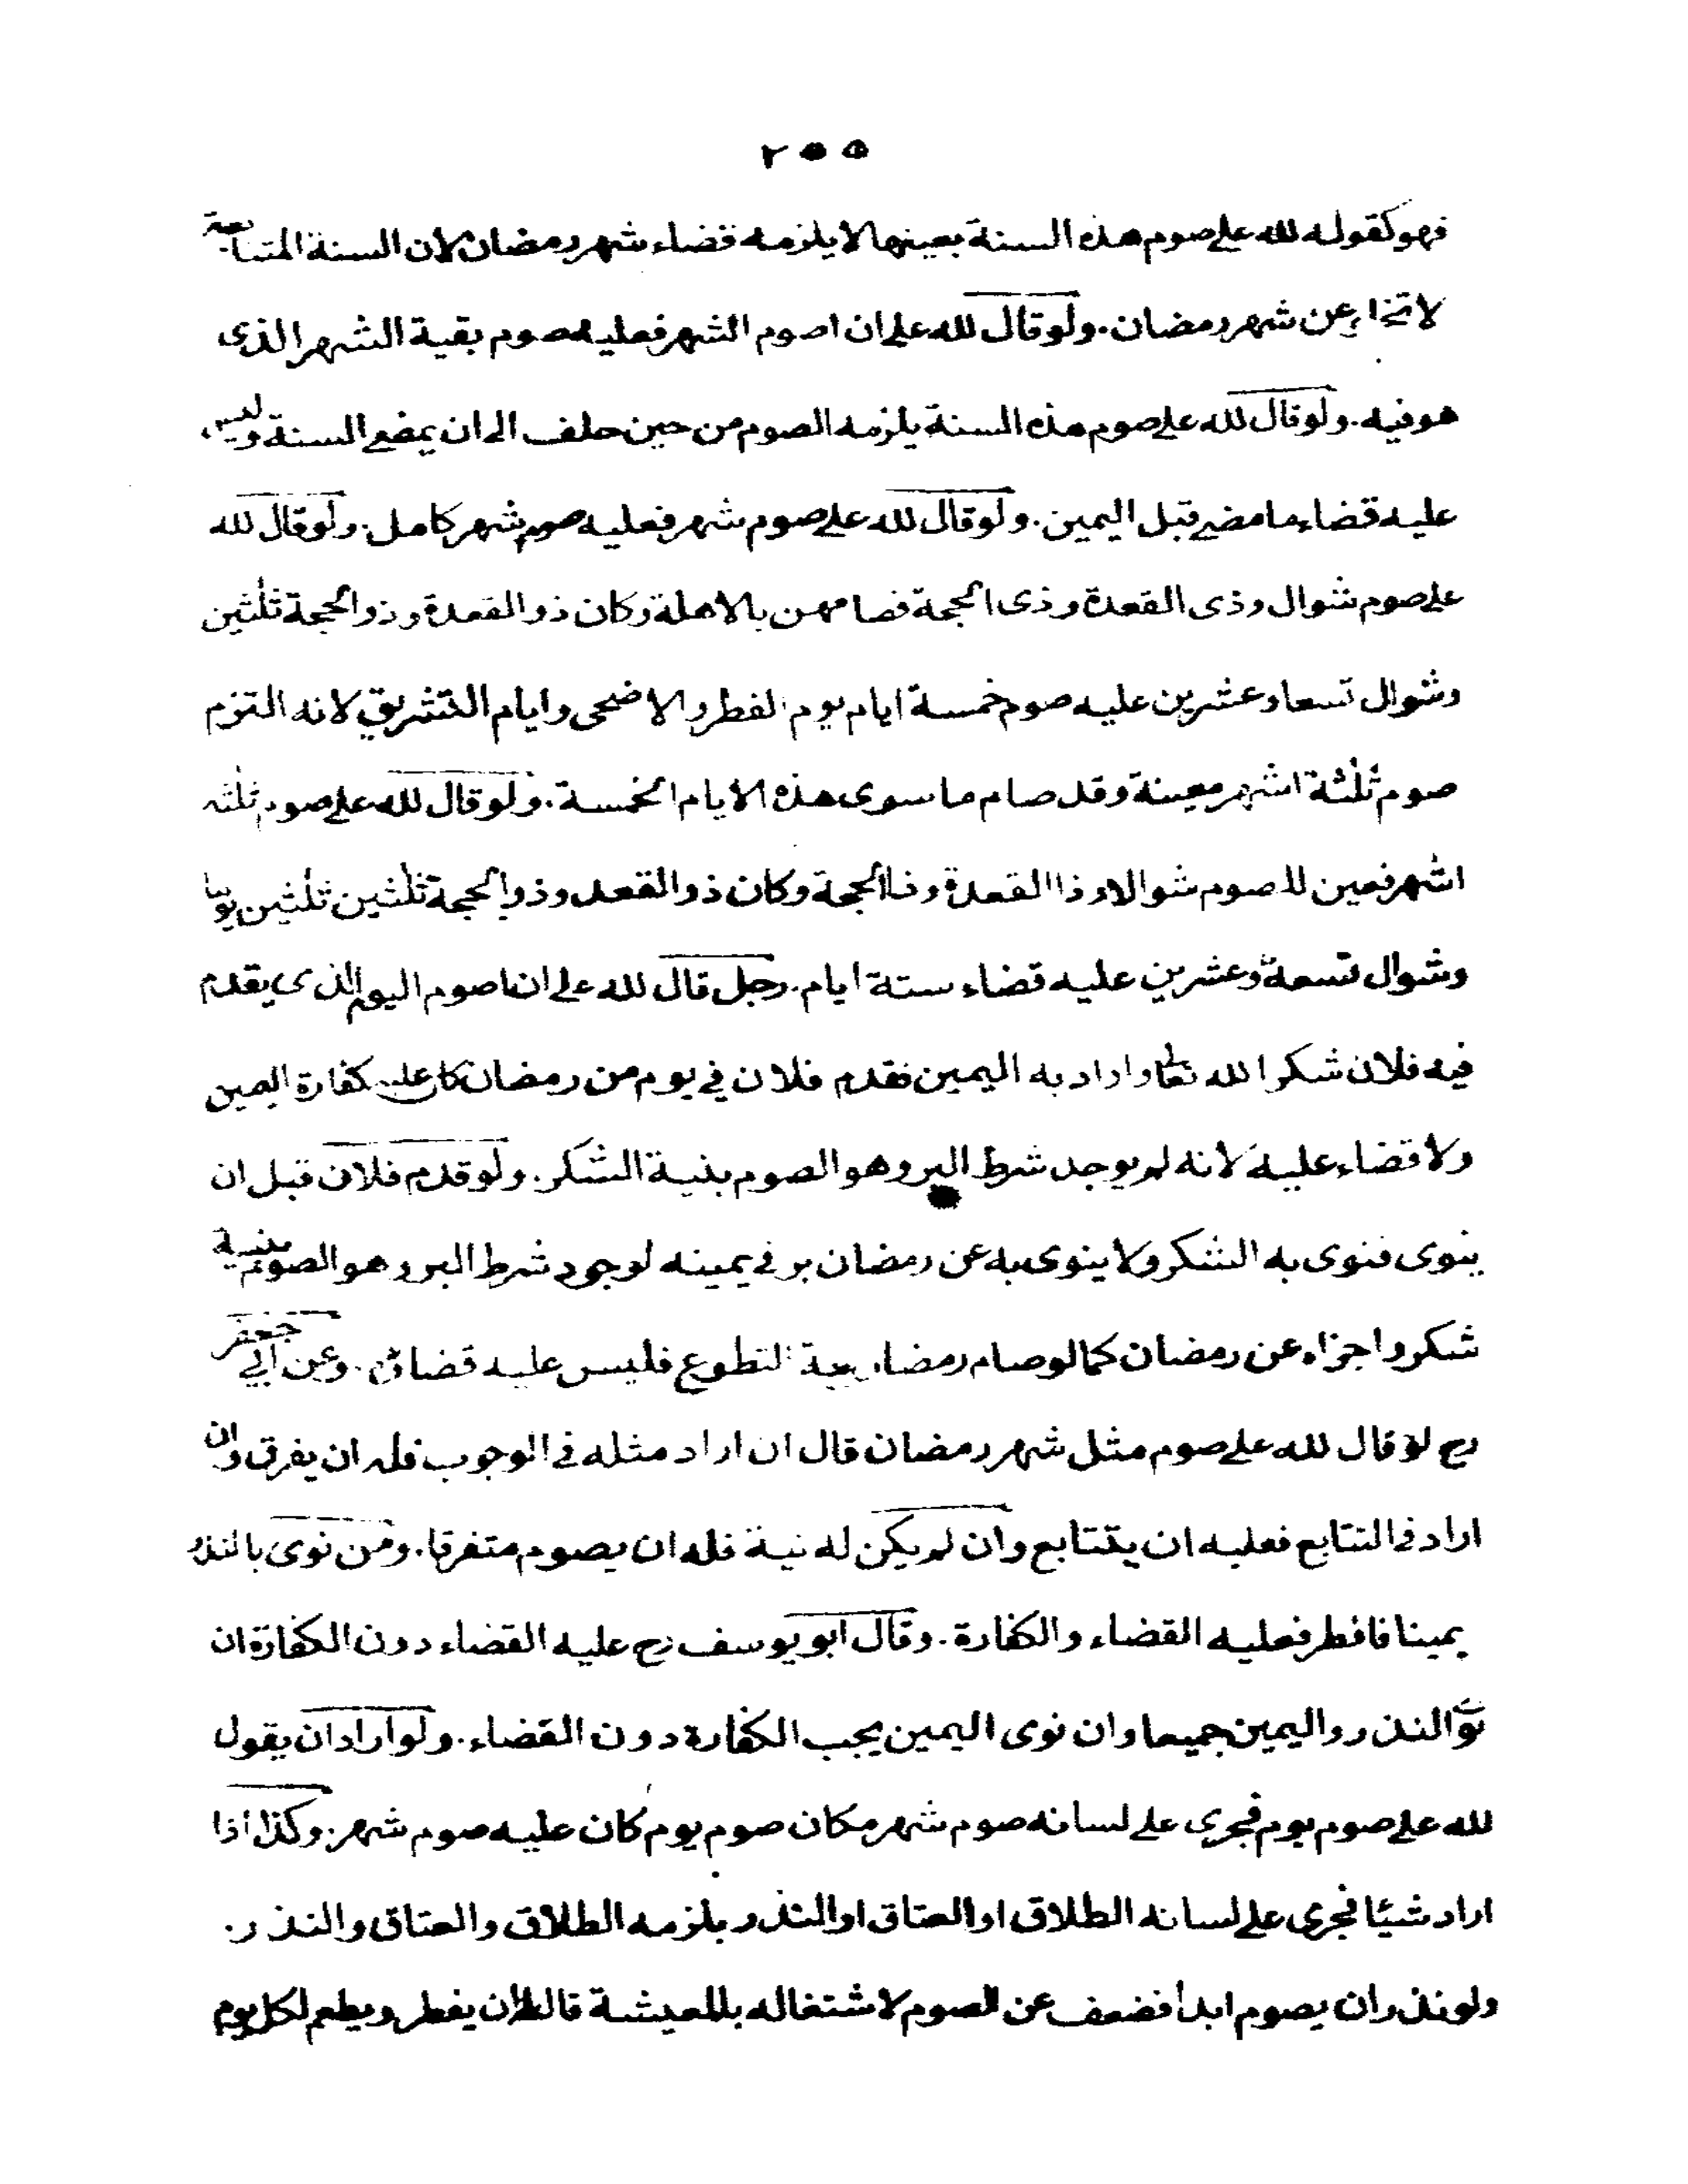 ٢٠٥
فهو كقوله لله علي صوم هذه السنة بعينها لا يلزمه قضاء شهر رمضان لان السنة المتتابعة
لا تخلو عن شهر رمضان. ولو قال لله علي ان اصوم الشهر فعليه صوم بقية الشهر الذى
هو فيه. ولو قال لله علي صوم هذه السنة يلزمه الصوم من حين حلف الى ان يمضي السنة وليس
عليه قضاء ما مضى قبل اليمين. ولو قال لله علي صوم شهر فعليه صوم شهر كامل. ولو قال لله
علي صوم شوال وذى القعدة وذى الحجة فصامهن بالاهلة وكان ذو القعدة وذو الحجة ثلثين
وشوال تسعا وعشرين عليه صوم خمسة ايام يوم الفطر والاضحى وايام التشريق لانه التزم
صوم ثلثة اشهر معينة وقد صام ما سوى هذه الايام الخمسة. ولو قال لله علي صوم ثلثه
اشهر فعين للصوم شوالا وذا القعدة وذا الحجة وكان ذو القعد وذو الحجة ثلثين ثلثين يوما
وشوال تسعة وعشرين عليه قضاء ستة ايام. رجل قال لله علي ان اصوم اليوم الذى يقدم
فيه فلان شكرا لله تعا واراد به اليمين فقدم فلان في يوم من رمضان كان عليه كفارة اليمين
ولا قضاء عليه لانه لم يوجد شرط البر وهو الصوم بنية الشكر. ولو قدم فلان قبل ان
ينوى فنوى به الشكر ولا ينوى به عن رمضان بر في يمينه لوجود شرط البر وهو الصوم بنية
شكر واجزاه عن رمضان كما لو صام رمضان بنية التطوع فليس عليه قضاؤه. وعن ابي جعفر
رح لو قال لله علي صوم مثل شهر رمضان قال ان اراد مثله فى الوجوب فله ان يفرق وان
اراد فى التتابع فعليه ان يتتابع وان لم يكن له نية فله ان يصوم متفرقا. ومن نوى بالنذر
يمينا فافطر فعليه القضاء والكفارة. وقال ابو يوسف رح عليه القضاء دون الكفارة ان
نوى النذر واليمين جميعا وان نوى اليمين يجب الكفارة دون القضاء. ولو اراد ان يقول
لله علي صوم يوم فجرى على لسانه صوم شهر مكان صوم يوم كان عليه صوم شهر. وكذا اذا
اراد شيئا فجرى على لسانه الطلاق او العتاق او النذر يلزمه الطلاق والعتاق والنذر.
ولو نذر ان يصوم ابدا فضعف عن الصوم لاشتغاله بالمعيشة قالوا له ان يفطر ويطعم لكل يوم